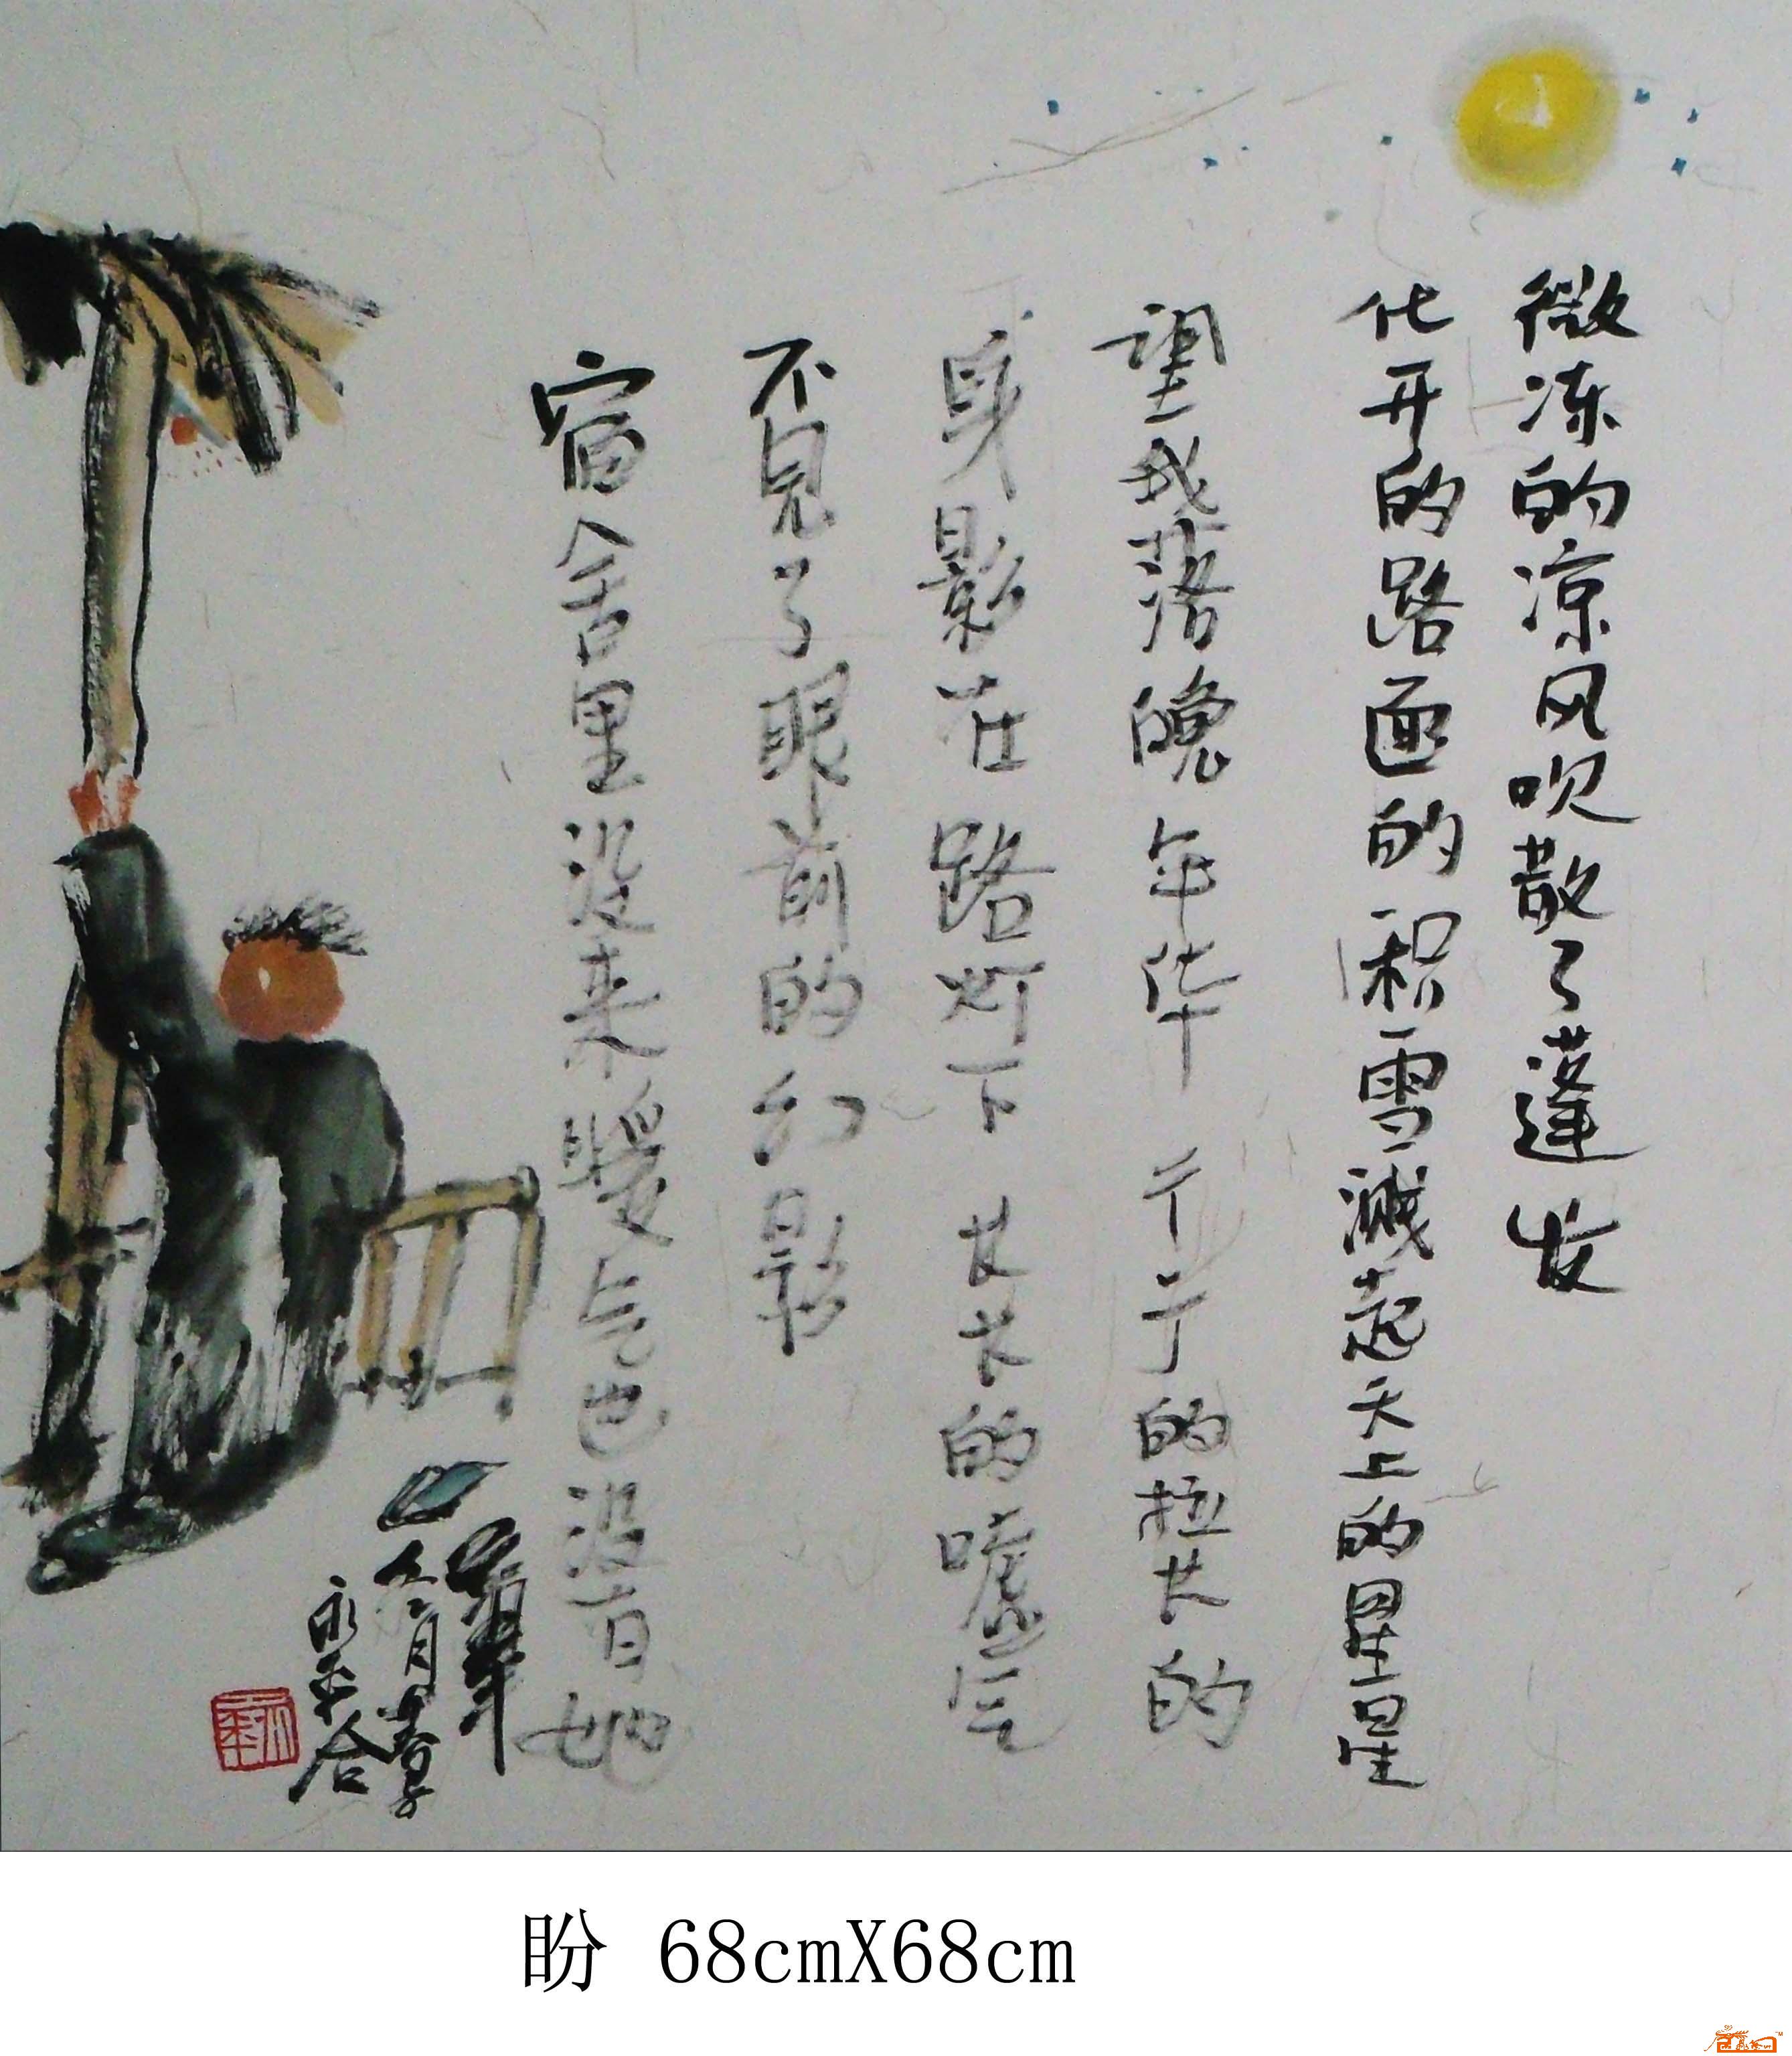 微冻的凉风吹散了蓬发
化开的路面的积雪溅起天上的星星
望我落魄年华 孑孓的拉长的
身影在路灯下 长长的嘘气
不见了眼前的幻影
宿舍里没来暖气也没有她
永平合
盼 68cmX68cm